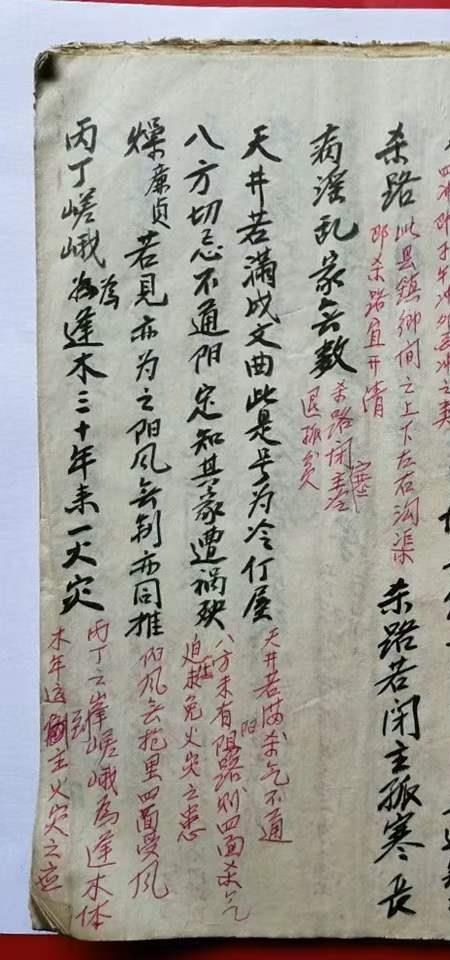 杀路 此县镇乡间之上下左右沟渠 杀路若闭主孤寒长
即杀路宜开清
病淫乱家无数 杀路闭塞主
退孤贫
天井若满成文曲此是号为冷仃屋 天井若满杀气不通
八方切忌不通阳定知其家遭祸殃 八方未有阳路则四面杀气
免火灾之患
燥廉贞若见亦为之阳风无制亦同推 四面受风
丙丁嵯峨为逢木三十年来一火灾 丙丁之峰嵯峨为逢木体
木年运到主火灾之应